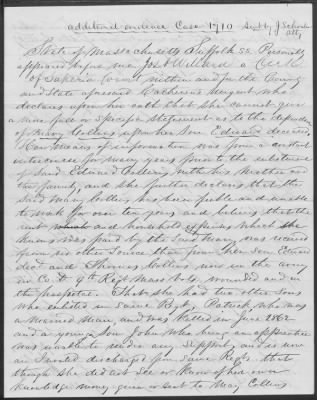 additional evidence Case 1710 Sent by J. Schouler
atty
State of Massachusetts Suffolk SS Personally
appeared before me Jos A Willard a Clerk
of Superior Court within and for the County
and State aforesaid Catherine Nugent who
declares upon her oath that she cannot give
a more full or specific statement as to the dependence
of Mary Collins upon her son Edward deceased.
Her means of information was from a constant
intercourse for many years prior to the enlistment
of said Edward Collins, with his Mother and
the family, and she further declares that the
said Mary Collins has been feeble and unable
to work for over ten years and believes that the
rent and household expenses which she
knows was paid by the said Mary, was received
from no other source than from then son Edward
decd and Thomas Collins now in the army
in Co. 9th Regt Mass Vols, wounded and in
the hospital. That she had two other sons
who enlisted in same Regt, Patrick who was
a married man, and was killed in June 1862
and a young son John who being an apprentice
was unable to render any support, and is now
an Invalid discharged from same Regt. that
though she did not see or know of her own
knowledge money given or sent to Mary Collins